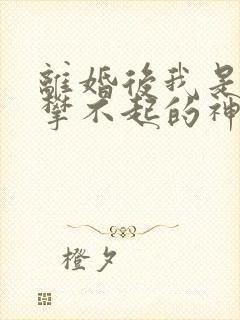 離婚後我是
攀不起的神
橙夕